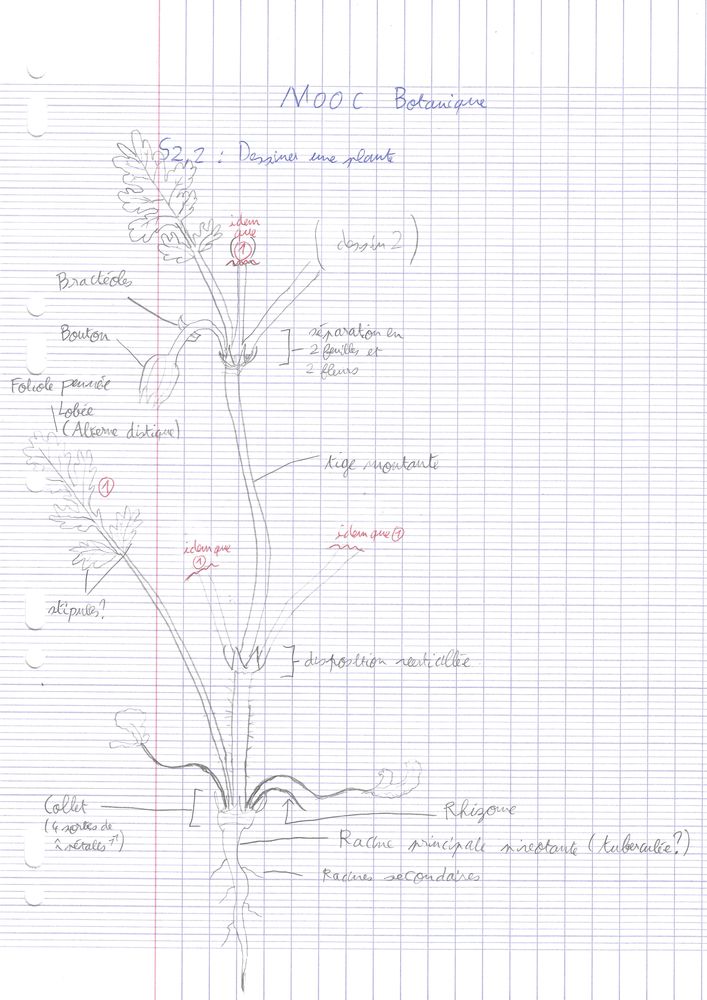 MOOC Botanique
S2,2 : Dessiner une plante
idem
que
①
(dessin 2)
Bractéoles
Bouton
séparation en
2 feuilles et
2 fleurs
Foliole pennée
Lobée
(Alterne distique)
①
tige montante
idem que
①
idem que ①
stipules?
disposition verticillée
Collet
(4 sortes de
Rhizome
Racine principale pivotante (tuberculée?)
Racines secondaires